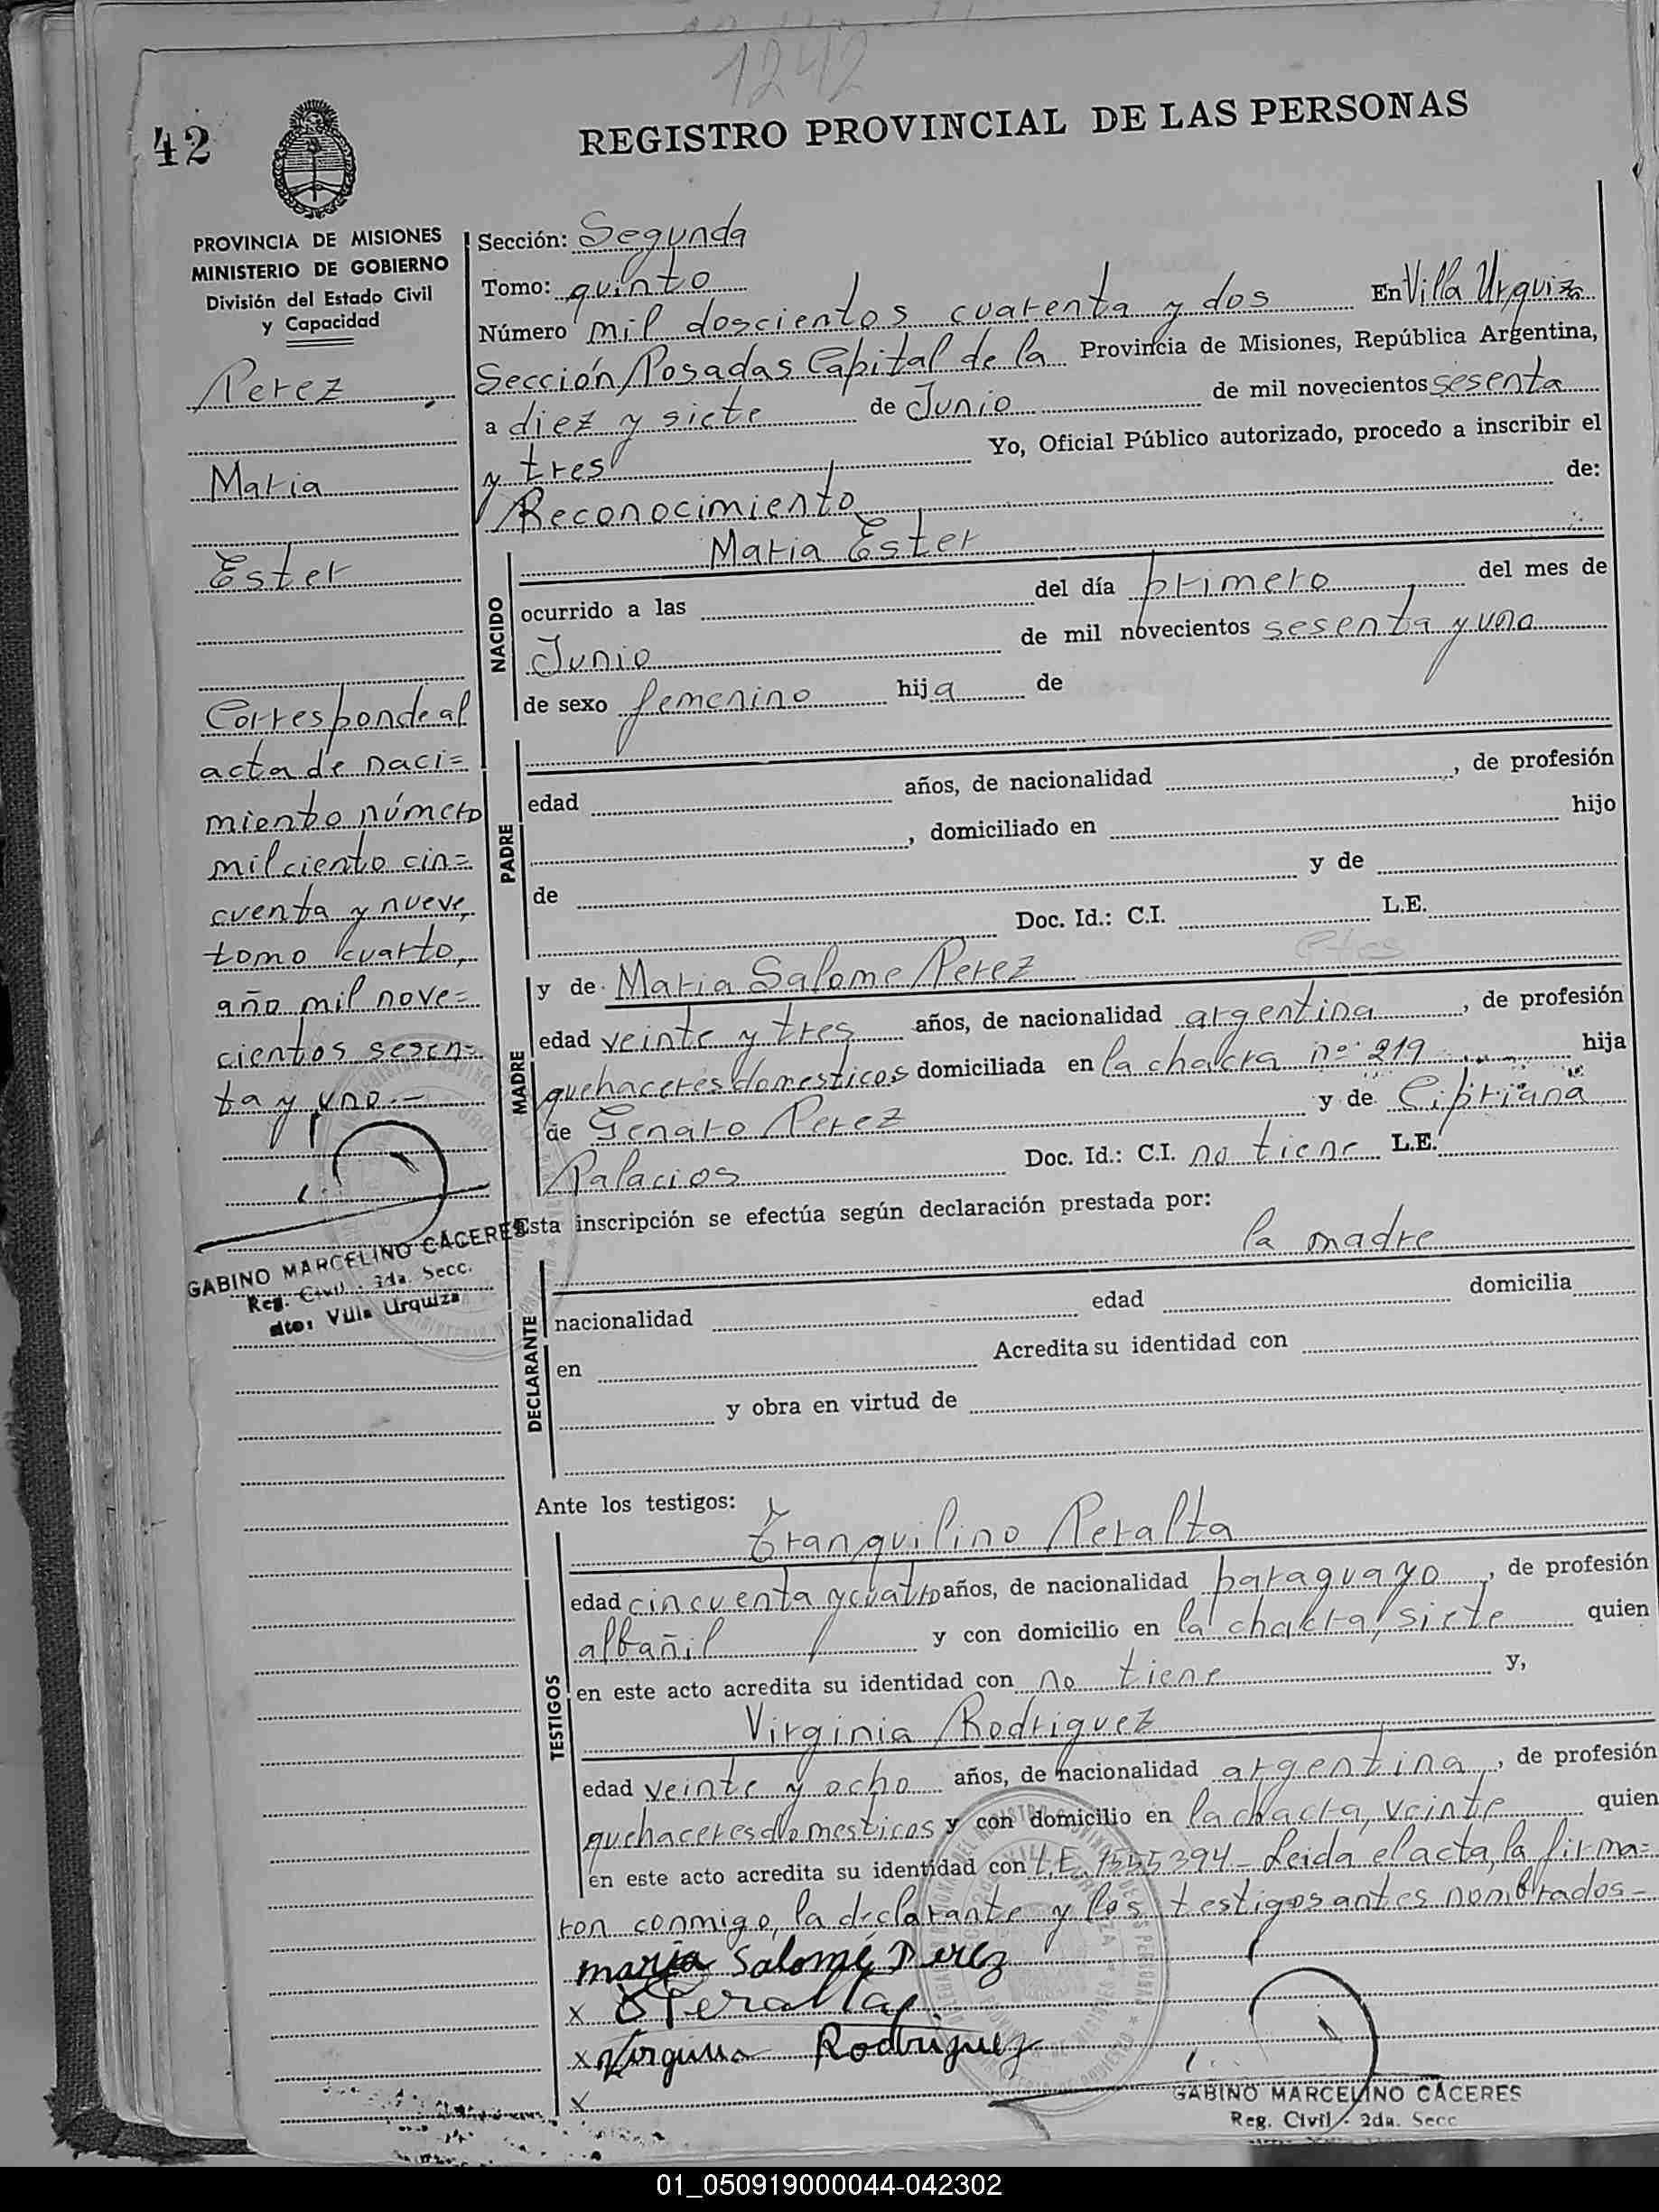 1242
42
REGISTRO PROVINCIAL DE LAS PERSONAS
PROVINCIA DE MISIONES
MINISTERIO DE GOBIERNO
División del Estado Civil
y Capacidad
Perez
Maria
Ester
Corresponde al
acta de naci=
miento número
mil ciento cin=
cuenta y nueve,
tomo cuarto,
año mil nove=
cientos sesen=
ta y uno.-
GABINO MARCELINO CACERES
Reg. Civil - 2da. Secc.
dto: Villa Urquiza
Sección: Segunda
Tomo: quinto
Número mil doscientos cuarenta y dos En Villa Urquiza
Sección Posadas Capital de la Provincia de Misiones, República Argentina,
a diez y siete de Junio de mil novecientos sesenta
y tres Yo, Oficial Público autorizado, procedo a inscribir el
Reconocimiento de:
NACIDO
Maria Ester
ocurrido a las del día primero del mes de
Junio de mil novecientos sesenta y uno
de sexo femenino hija de
PADRE
edad años, de nacionalidad , de profesión
, domiciliado en hijo
de y de
Doc. Id.: C.I. L.E.
MADRE
y de Maria Salome Perez
edad veinte y tres años, de nacionalidad argentina, de profesión
quehaceres domesticos domiciliada en la chacra nº 219 hija
de Genaro Perez y de Cipriana
Palacios Doc. Id.: C.I. no tiene L.E.
Esta inscripción se efectúa según declaración prestada por:
DECLARANTE
la madre
nacionalidad edad domicilia
en Acredita su identidad con
y obra en virtud de
Ante los testigos:
TESTIGOS
Tranquilino Peralta
edad cincuenta y cuatro años, de nacionalidad paraguayo, de profesión
albañil y con domicilio en la chacra, siete quien
en este acto acredita su identidad con no tiene y,
Virginia Rodriguez
edad veinte y ocho años, de nacionalidad argentina, de profesión
quehaceres domesticos y con domicilio en la chacra, veinte quien
en este acto acredita su identidad con L.E. 1555394 - Leida el acta, la firma=
ron conmigo, la declarante y los testigos antes nombrados-
maria Salomé Perez
x Peralta
x Virginia Rodriguez
x
GABINO MARCELINO CACERES
Reg. Civil - 2da. Secc
01_050919000044-042302